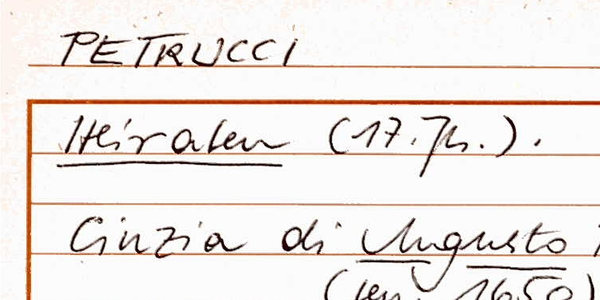 PETRUCCI
Heiraten (17. Jh.).
Cinzia di Augusto
1650)